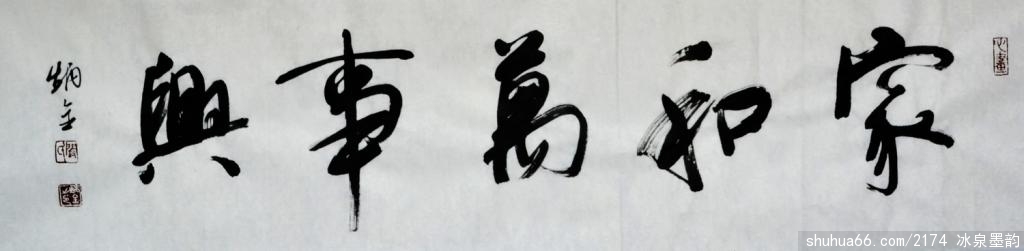 家和萬事興
炳金
shuhua66.com/2174 冰泉墨韵